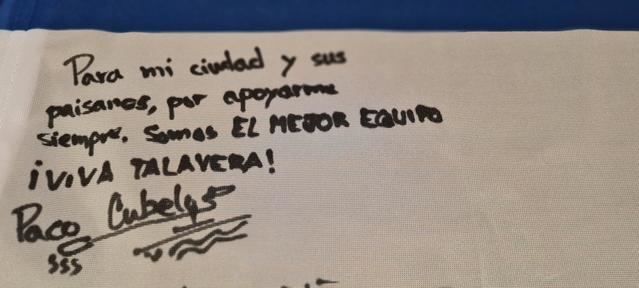 Para mi ciudad y sus
paisanos, por apoyarme
siempre. Somos EL MEJOR EQUIPO
¡VIVA TALAVERA!
Paco Cubelos